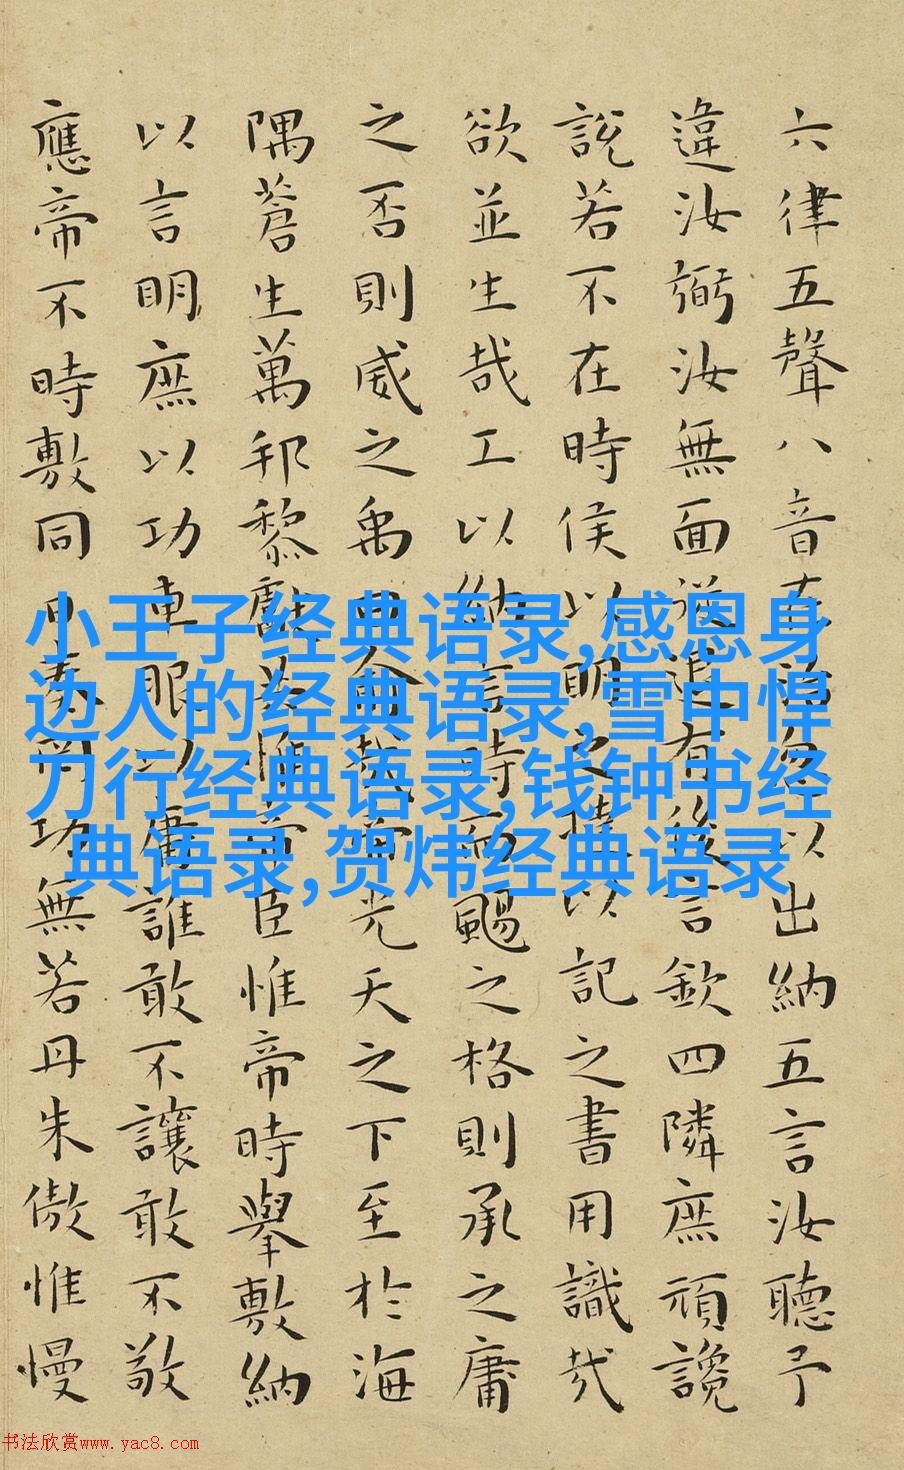 六律五聲八音在治忽以出納五言汝聽予
違汝弼汝無面從退有後言欽四隣庶頑讒
說若不在時侯以明之撻以記之書用識哉
欲並生哉工以納言時而颺之格則承之庸
之否則威之禹曰俞哉帝光天之下至於海
隅蒼生萬邦黎獻共惟帝臣惟帝時舉敷納
以言明庶以功車服以庸誰敢不讓敢不敬
應帝不時敷同日奏罔功無若丹朱傲惟慢
小王子经典语录,感恩身
边人的经典语录,雪中悍
刀行经典语录,钱钟书经
典语录,贺炜经典语录
书法欣赏www.yac8.com